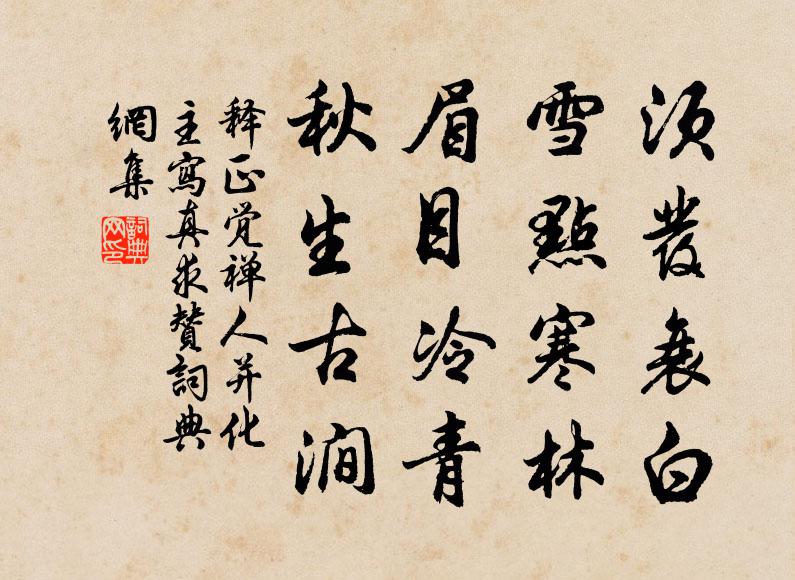 须发衰白
雪點寒林
眉目冷青
秋生古澗
释正觉禅人并化
主寫真求赞詞典
網集
詞典
网印